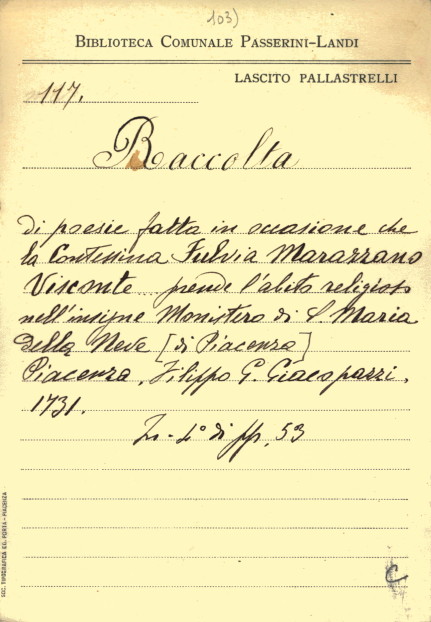 103)
BIBLIOTECA COMUNALE PASSERINI-LANDI
LASCITO PALLASTRELLI
117.
Raccolta
di poesie fatta in occasione che
la Contessina Fulvia Marazzano
Visconte prende l'abito religioso
nell'insigne Monistero di S. Maria
della Neve [di Piacenza]
Piacenza, Filippo G. Giacopazzi,
1731.
In-4° di pp. 53
SOC. TIPOGRAFICA ED. PORTA - PIACENZA
C